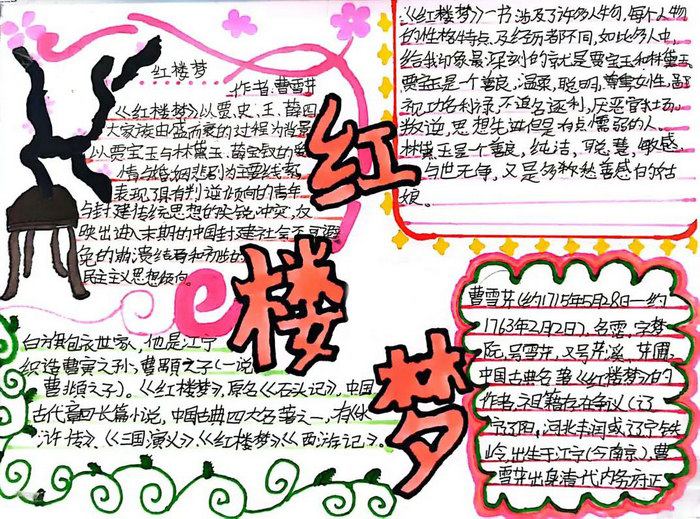 红楼梦
作者:曹雪芹
《红楼梦》以贾、史、王、薛四
大家族由盛而衰的过程为背景
以贾宝玉与林黛玉、薛宝钗的
情与婚姻悲剧为主要线索
表现了具有叛逆倾向的青年
与封建传统思想的尖锐冲突,反
映出进入末期的中国封建社会不可避
免的崩溃结局和初步的
民主主义思想倾向。
红楼梦
《红楼梦》一书涉及了许多人物,每个人物
的性格特点及经历者都不同,如此多人中,
给我印象最深刻的就是贾宝玉和林黛玉
贾宝玉是个善良,温柔,聪明,尊重女性,
视功名利禄,不追名逐利,厌恶官场
叛逆,思想先进但是有点懦弱的人。
林黛玉是个善良,纯洁,聪慧,敏感,
与世无争,又是多愁善感的姑
娘。
白旗包衣世家,他是江宁
织造曹寅之孙,曹顒之子(一说
曹頫之子)。《红楼梦》,原名《石头记》,中国
古代章回长篇小说,中国古典四大名著之一,有《水
浒传》、《三国演义》、《红楼梦》《西游记》。
曹雪芹(约1715年5月28日—约
1763年2月2日),名霑,字梦
阮,号雪芹,又号芹溪、芹圃,
中国古典名著《红楼梦》的
作者,祖籍存在争议(辽
宁辽阳,河北丰润或辽宁铁
岭),出生于江宁(今南京),曹
雪芹出身清代内务府正